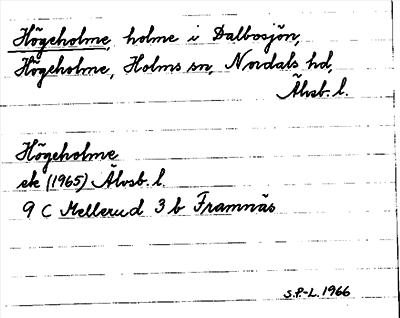 Högeholme, holme i Dalbosjön,
Högeholme, Holms sn, Nordals hd,
Älvsb. l.
Högeholme
ek (1965) Älvsb. l.
9 C Mellerud 3 b Framnäs
S.P-L. 1966